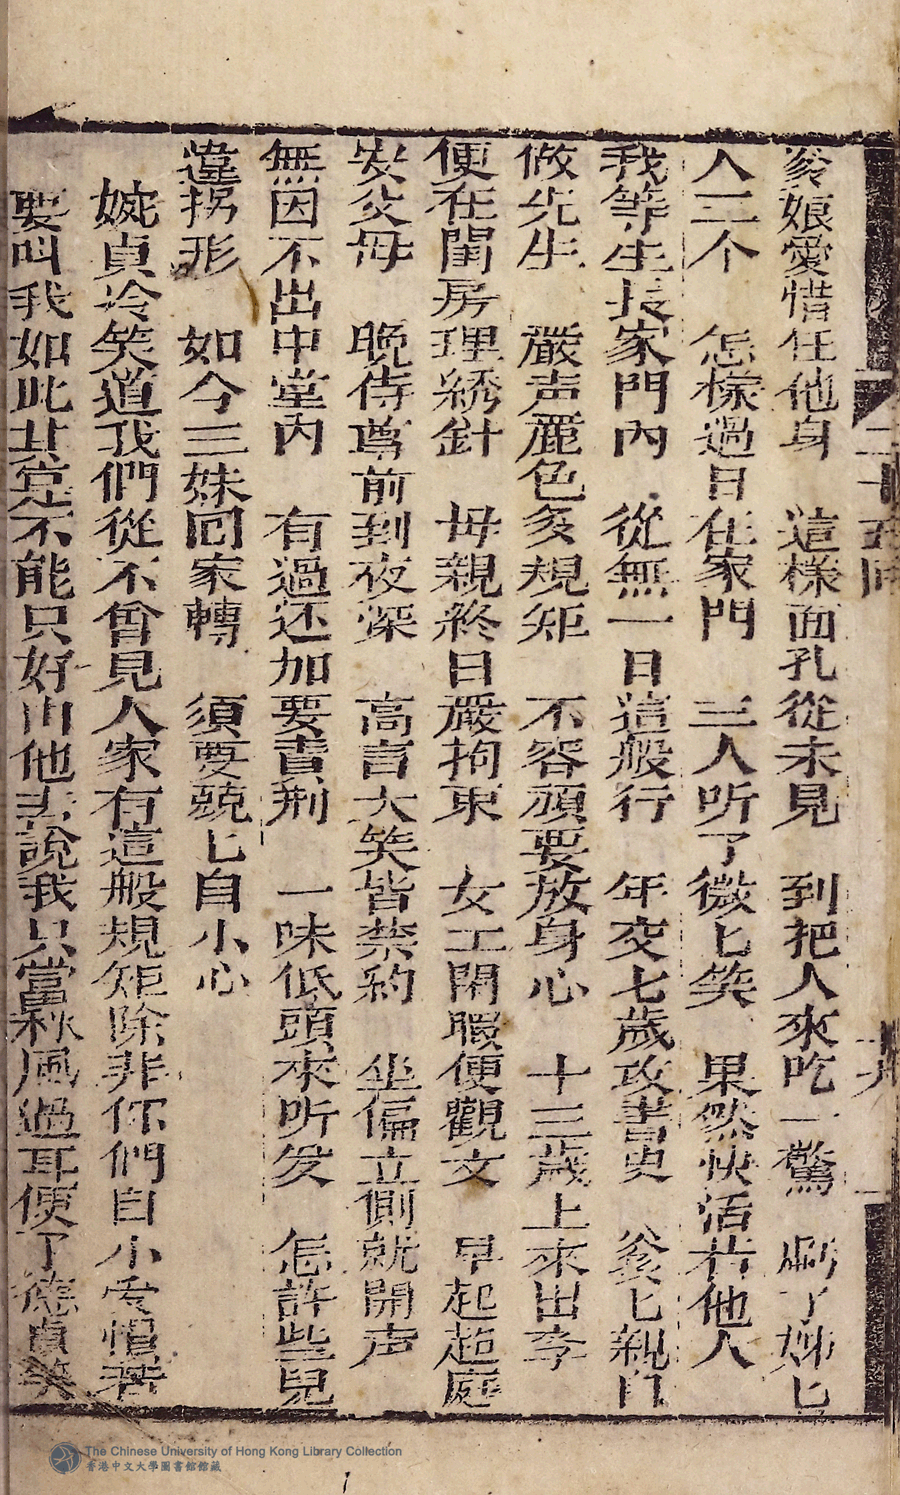 二十五回
十九
爹娘愛惜任他身　這樣面孔從未見　到把人來吃一驚　刷了姊匕
人二个　怎樣過日在家門　三人听了微匕笑　果然快活若他人
我等生長家門內　從無一日這般行　年交七歲攻書史　爹匕親自
做先生　嚴声厲色多規矩　不容頑耍放身心　十三歲上來出李
便在閨房理綉針　母親終日嚴拘束　女工閑暇便觀文　早起趋庭
安父母　晚侍尊前到夜深　高言大笑皆禁約　坐偏立側就開声
無因不出中堂內　有過还加要責荆　一味低頭來听发　怎許些兒
違拐形　如今三妹囘家轉　須要兢匕自小心
婉貞冷笑道我們從不曾見人家有這般規矩除非你們自小愛惜若
要叫我如此其寔不能只好由他去說我只當秋風過耳便了德貞笑
The Chinese University of Hong Kong Library Collection
香港中文大學圖書館館藏